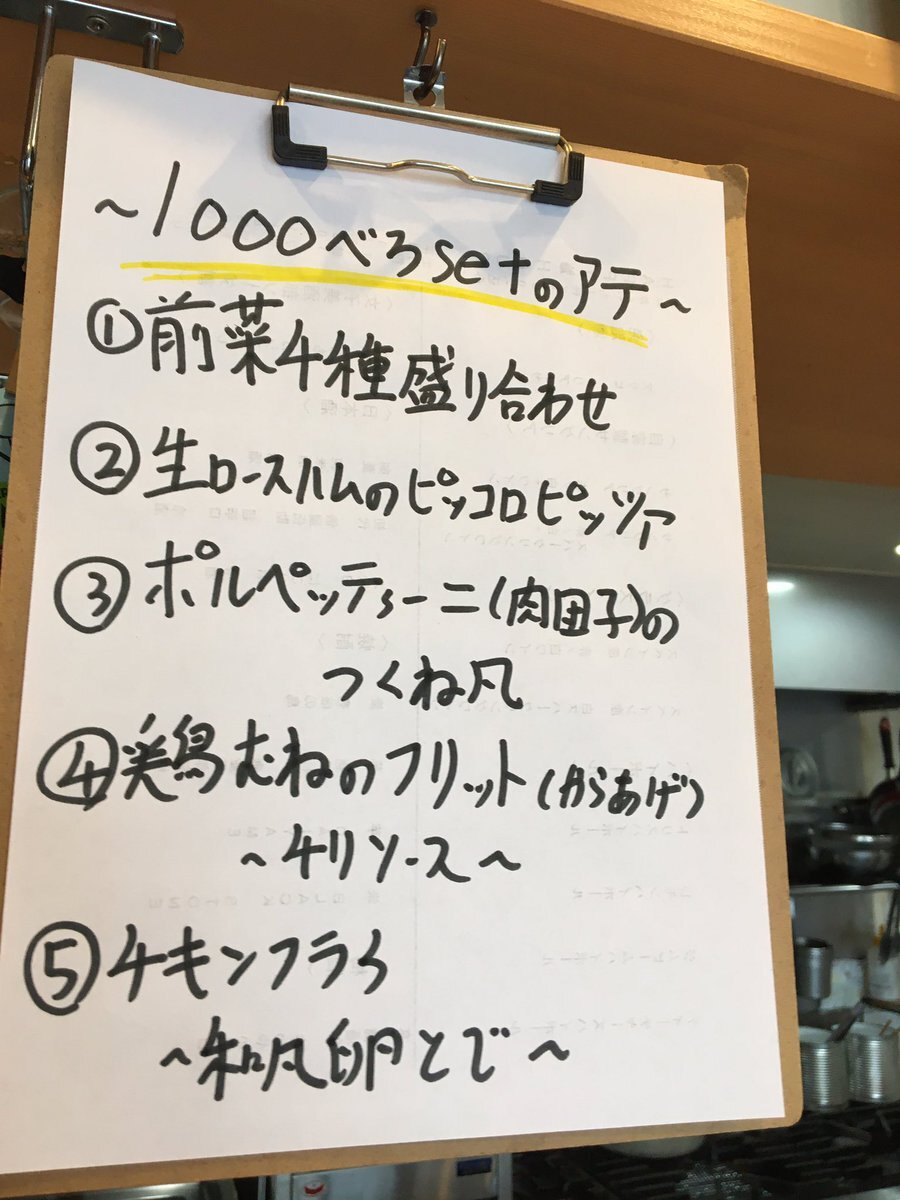 ~1000べろsetのアテ~
①前菜4種盛り合わせ
②生ロースハムのピッコロピッツァ
③ポルペッティーニ(肉団子)の
つくね風
④鶏むねのフリット(からあげ)
~チリソース~
⑤チキンフライ
~和風卵とじ~